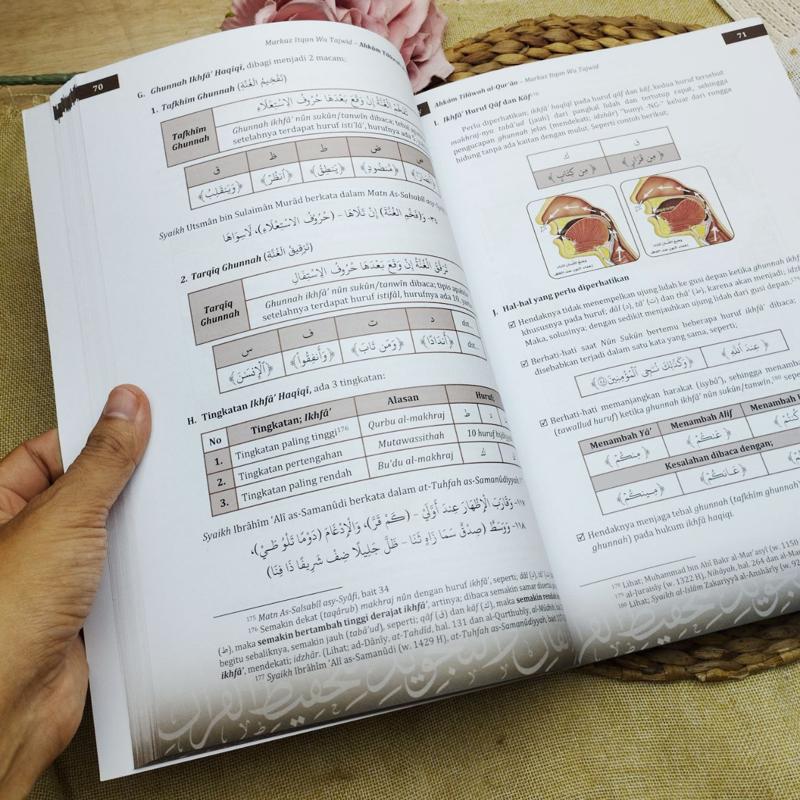 70
Markaz Itqan Wa Tajwid – Ahkâm
G. Ghunnah Ikhfâ' Haqîqî, dibagi menjadi 2 macam;
1. Tafkhîm Ghunnah (تَفْخِيْمُ الْغُنَّةِ)
Tafkhîm Ghunnah
تُفَخَّمُ الْغُنَّةُ إِنْ وَقَعَ بَعْدَهَا حُرُوْفُ الْاِسْتِعْلَاءِ
Ghunnah ikhfâ' nûn sukûn/tanwîn dibaca; tebal
setelahnya terdapat huruf isti'lâ', hurufnya ada
ق ظ ط ض ص
﴿وَيَنقَلِبُ﴾ ﴿أَنظُرْ﴾ ﴿يَنطِقُ﴾ ﴿مَنضُودٍ﴾
Syaikh Utsmân bin Sulaimân Murâd berkata dalam Matn As-Salsabîl
٣٤- وَفَخِّمِ الْغُنَّةَ إِنْ تَلَاهَا – حُرُوْفُ الْاِسْتِعْلَاءِ، لَاسِوَاهَا
2. Tarqîq Ghunnah (تَرْقِيْقُ الْغُنَّةِ)
Tarqîq Ghunnah
تُرَقَّقُ الْغُنَّةُ إِنْ وَقَعَ بَعْدَهَا حُرُوْفُ الْاِسْتِفَالِ
Ghunnah ikhfâ' nûn sukûn/tanwîn dibaca; tipis
setelahnya terdapat huruf istifâl, hurufnya ada 10,
س ف ت د dst...
﴿الْإِنسَٰنَ﴾ ﴿وَأَنفِقُوا﴾ ﴿وَمَن تَابَ﴾ ﴿أَندَادًا﴾ dst...
H. Tingkatan Ikhfâ' Haqîqî, ada 3 tingkatan:
No Tingkatan; Ikhfâ' Alasan Huruf
1. Tingkatan paling tinggi176 Qurbu al-makhraj ط د
2. Tingkatan pertengahan Mutawassithah 10 huruf
3. Tingkatan paling rendah Bu'du al-makhraj ك
Syaikh Ibrâhîm 'Alî as-Samanûdî berkata dalam at-Tuhfah as-Samanûdiyyah
وَقَارَبَ الْإِظْهَارَ عِنْدَ أَوَّلَيْ – (كَمْ قَرَّ)، وَالْإِدْغَامَ (دَوْمًا تَلَوْ طَيْ)،
١١٨- وَوَسَطٌ (صِدْقٌ سَمَا زَاهٍ ثَنَا – ظَلَّ جَلِيلًا ضِفْ شَرِيفًا ذَا فِنَا)
175 Matn As-Salsabîl asy-Syâfi, bait 34
176 Semakin dekat (taqârub) makhraj nûn dengan huruf ikhfâ', seperti; dâl (د), tâ' (ت)
(ط), maka semakin bertambah tinggi derajat ikhfâ', artinya; dibaca semakin samar
begitu sebaliknya, semakin jauh (tabâ'ud), seperti; qâf (ق) dan kâf (ك), maka semakin
ikhfâ', mendekati; idzhâr. (Lihat; ad-Dânîy, at-Tahdîd, hal. 131 dan al-Qurthubîy, al-Mûdhih,
177 Syaikh Ibrâhîm 'Alî as-Samanûdî (w. 1429 H), at-Tuhfah as-Samanûdiyyah, bait
71
Ahkâm Tilâwah al-Qur'ân – Markaz Itqan Wa Tajwid
I. Ikhfâ' Huruf Qâf dan Kâf
Perlu diperhatikan; ikhfâ' haqîqî pada huruf qâf dan kâf, kedua huruf tersebut
makhraj-nya tabâ'ud (jauh) dari pangkal lidah dan tertutup rapat, sehingga
pengucapan ghunnah jelas (mendekati; idzhâr) "bunyi -NG-" keluar dari rongga
hidung tanpa ada kaitan dengan mulut. Seperti contoh berikut;
ك ق
﴿مِن كِتَابٍ﴾ ﴿مِن قَرَارٍ﴾
J. Hal-hal yang perlu diperhatikan
Hendaknya tidak menempelkan ujung lidah ke gusi depan ketika ghunnah
khususnya pada huruf; dâl (د), tâ' (ت) dan thâ' (ط), karena akan menjadi;
Maka, solusinya; dengan sedikit menjauhkan ujung lidah dari gusi depan.
Berhati-hati saat Nûn Sukûn bertemu beberapa huruf ikhfâ' dibaca;
disebabkan terjadi dalam satu kata yang sama, seperti;
﴿وَكَذَٰلِكَ نُنجِي الْمُؤْمِنِينَ﴾ ﴿عِندَ اللَّهِ﴾
Berhati-hati memanjangkan harakat (isybâ'), sehingga menambah
(tawallud huruf) ketika ghunnah ikhfâ' nûn sukûn/tanwîn,180
Menambah Yâ' Menambah Alif Menambah
﴿مِنكُمْ﴾ ﴿عَنكُمْ﴾
Kesalahan dibaca dengan;
﴿مِينكُمْ﴾ ﴿عَانكُمْ﴾
Hendaknya menjaga tebal ghunnah (tafkhîm ghunnah)
ghunnah) pada hukum ikhfâ haqîqî.
178 Lihat; Muhammad bin Abî Bakr al-Mar'asyî (w. 1150
179 al-Juraisîy (w. 1322 H), Nihâyah, hal. 264 dan al-
180 Lihat; Syaikh al-Islâm Zakariyyâ al-Anshârîy (w. 92